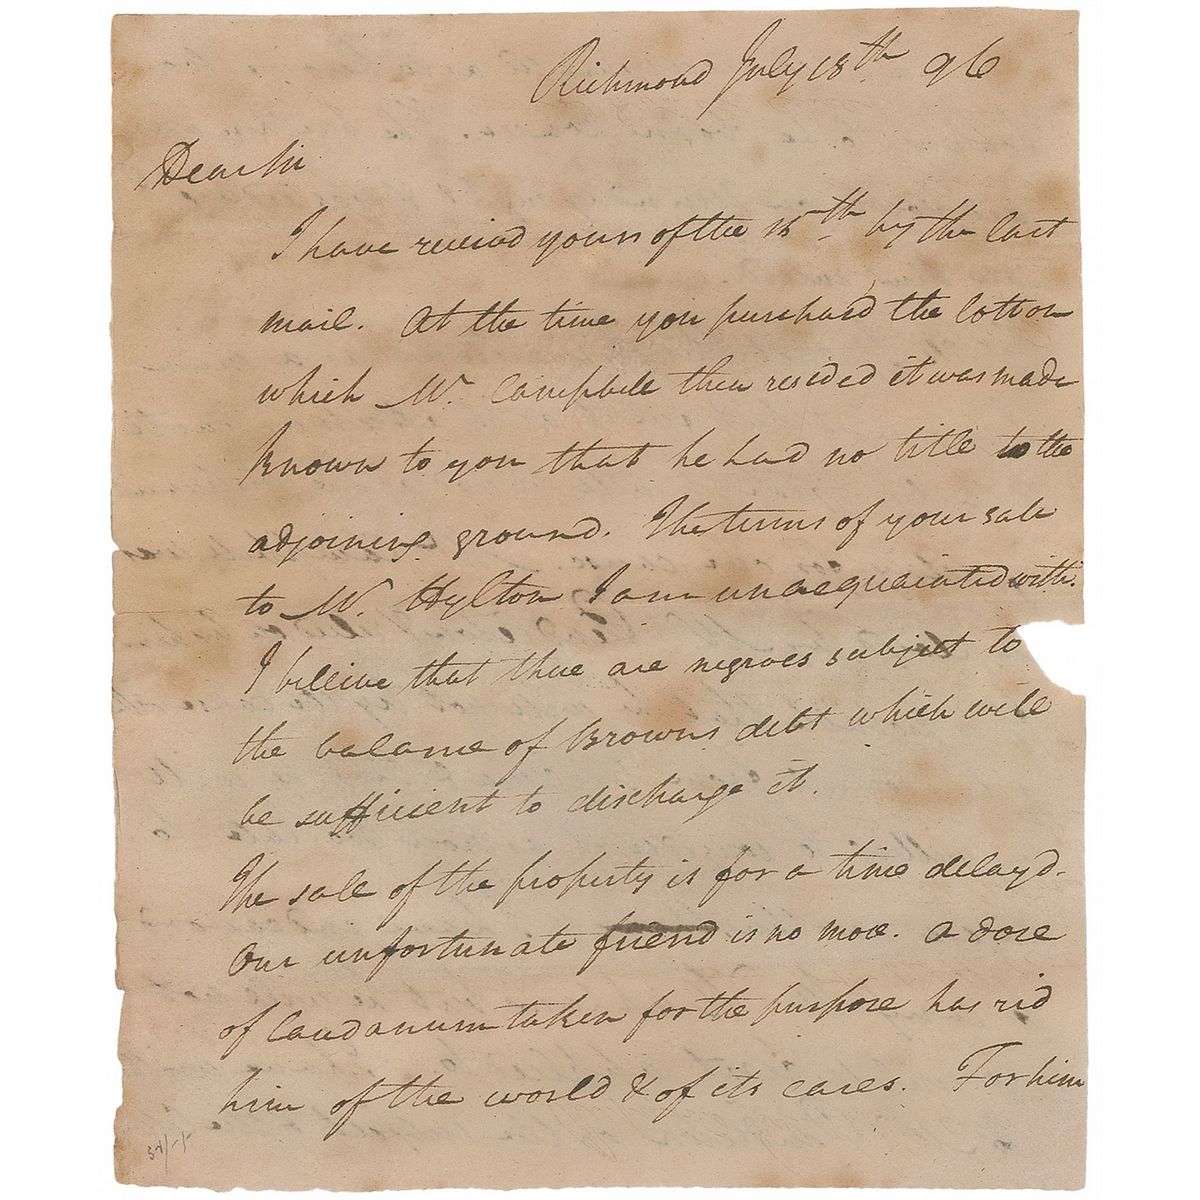 Richmond July 18th 96
Dear Sir
I have receivd yours of the 15th by the last
mail. At the time you purchasd the lott on
which Mr. Campbell then resided it was made
known to you that he had no title to the
adjoining ground. The terms of your sale
to Mr. Hylton I am unacquainted with.
I believe that there are negroes subject to
the balance of Browns debt which will
be sufficient to discharge it.
The sale of the property is for a time delayd.
Our unfortunate friend is no more. A dose
of laudanum taken for the purpose has rid
him of the world & of its cares. For him